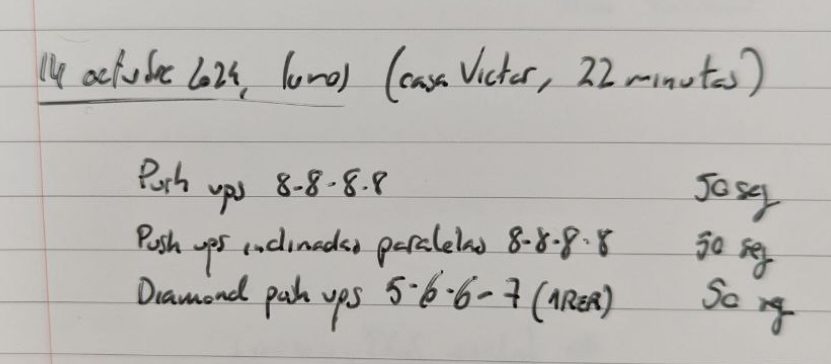 14 octubre 2024, lunes (casa Victor, 22 minutos)
Push ups 8-8-8-8 50 seg
Push ups inclinadas paralelas 8-8-8-8 50 seg
Diamond push ups 5-6-6-7 (1RER) 50 sg